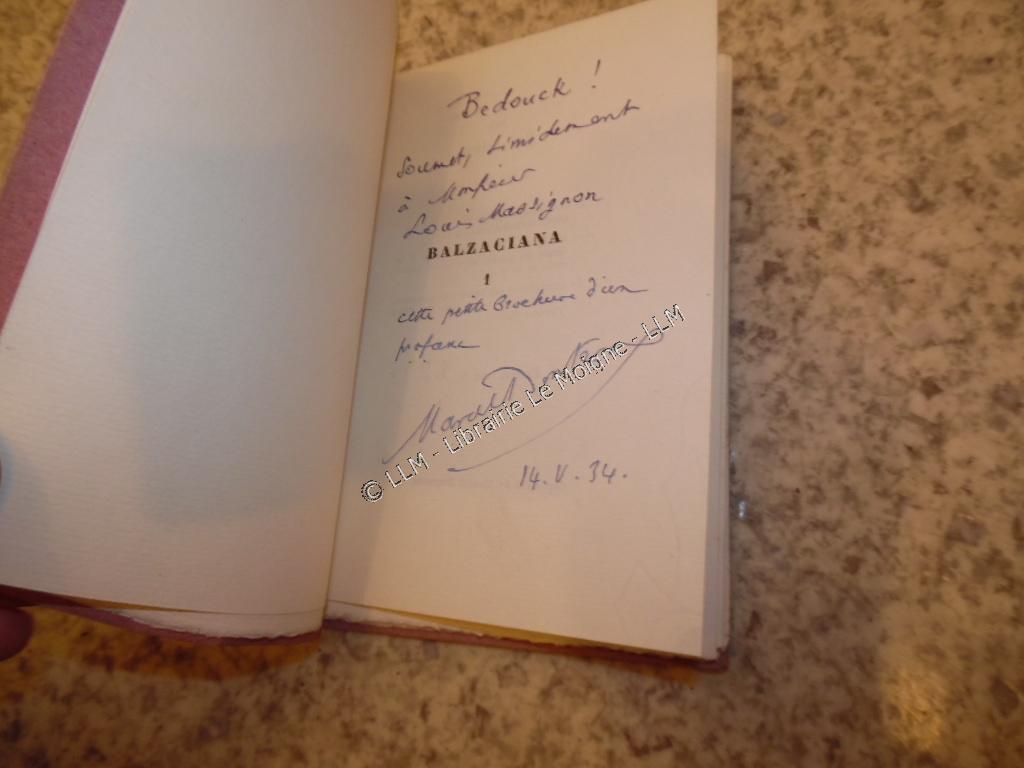 Bedouck !
Soumet, timidement
à Monsieur
Louis Massignon
BALZACIANA
1
cette petite brochure d'un
profane
Marcel
14.V.34.
© LLM - Librairie Le Moigne - LLM